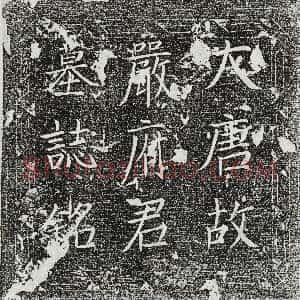 大唐故
嚴府君
墓誌銘